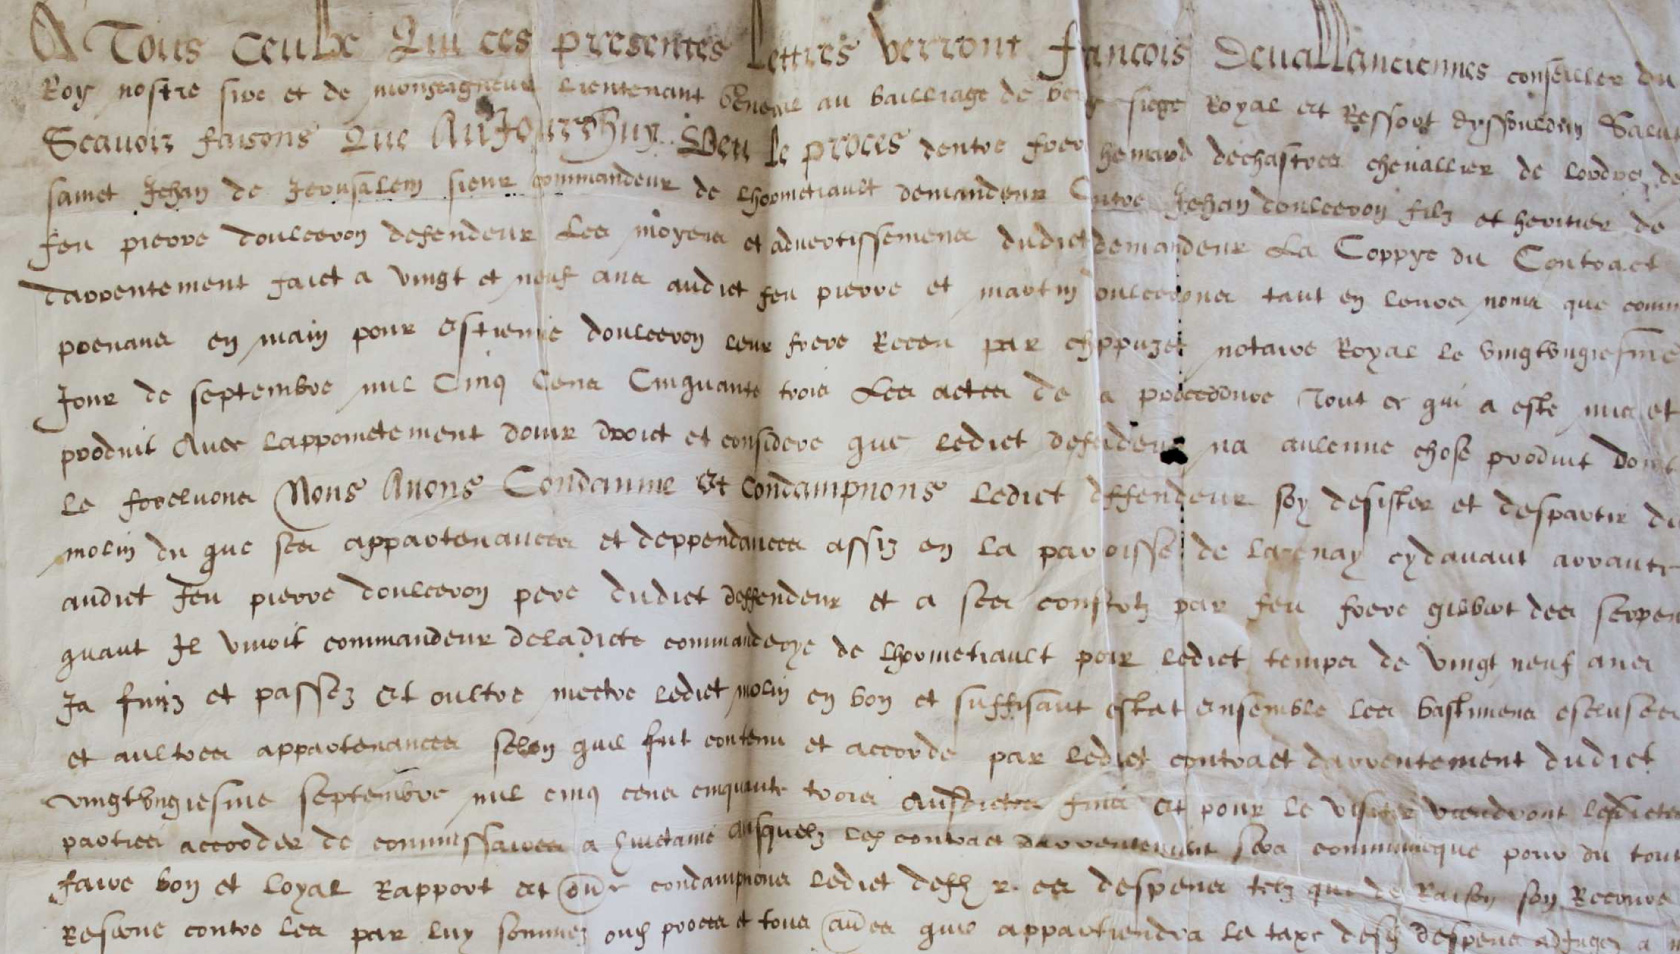 A Tous ceulx Qui ces presentes Lettres verront francois Devallanciennes conseiller du
Roy nostre sire et de monseigneur lieutenant general au bailliage de siege Royal et Ressort dyssouldun Salut
Scavoir faisons Que Aujourdhuy Veu Le proces dentre frere dechastres chevallier de lordre de
sainct Jehan de Jerusalem sieur commandeur de lhormeteault demandeur Contre Jehan doulceron filz et heritier de
feu pierre doulceron defendeur Les moyens et advertissemens dudict demandeur La Coppye du Contract
darrentement faict a vingt et neuf ans audict feu pierre et martin doulcerons tant en leurs noms que comme
prenans en main pour Estienne doulceron leur frere Receu par notaire Royal le vingtungiesme
Jour de septembre mil Cinq Cens Cinquante trois Les actes de la procedure Tout ce qui a este mis et
produit Avec lappoinctement douir droict et considere que ledict defendeur na aulcune chose produit dont
le forcluons Nous Avons Condamne Et Condampnons Ledict deffendeur soy desister et despartir du
molin du gue ses appartenances et deppendances assiz en la parroisse de lazenay cydavant arrante
audict feu pierre doulceron pere dudict deffendeur et a ses consortz par feu frere gilbert des serpens
quant Il vivoit commandeur deladicte commanderye de lhormeteault pour ledict temps de vingt neuf ans
Ja finiz et passez Et oultre mectre ledict molin en bon et suffisant estat ensemble les bastimens escluses
et aultres appartenances selon quil fut contenu et accorde par ledict contract darrentement dudict
vingtungiesme septembre mil cinq cens cinquante trois Ausdictes fins Et pour le visiter viendront lesdictes
parties accorder de commissaires a huictaine ausquelz led contract darrentement sera communicque pour du tout
faire bon et loyal Rapport et condampnons ledict deff es despens telz que de Raison son Recours
Reserve contre les par luy sommez oud proces et tous aues quil appartiendra la taxe desd despens adjugez a